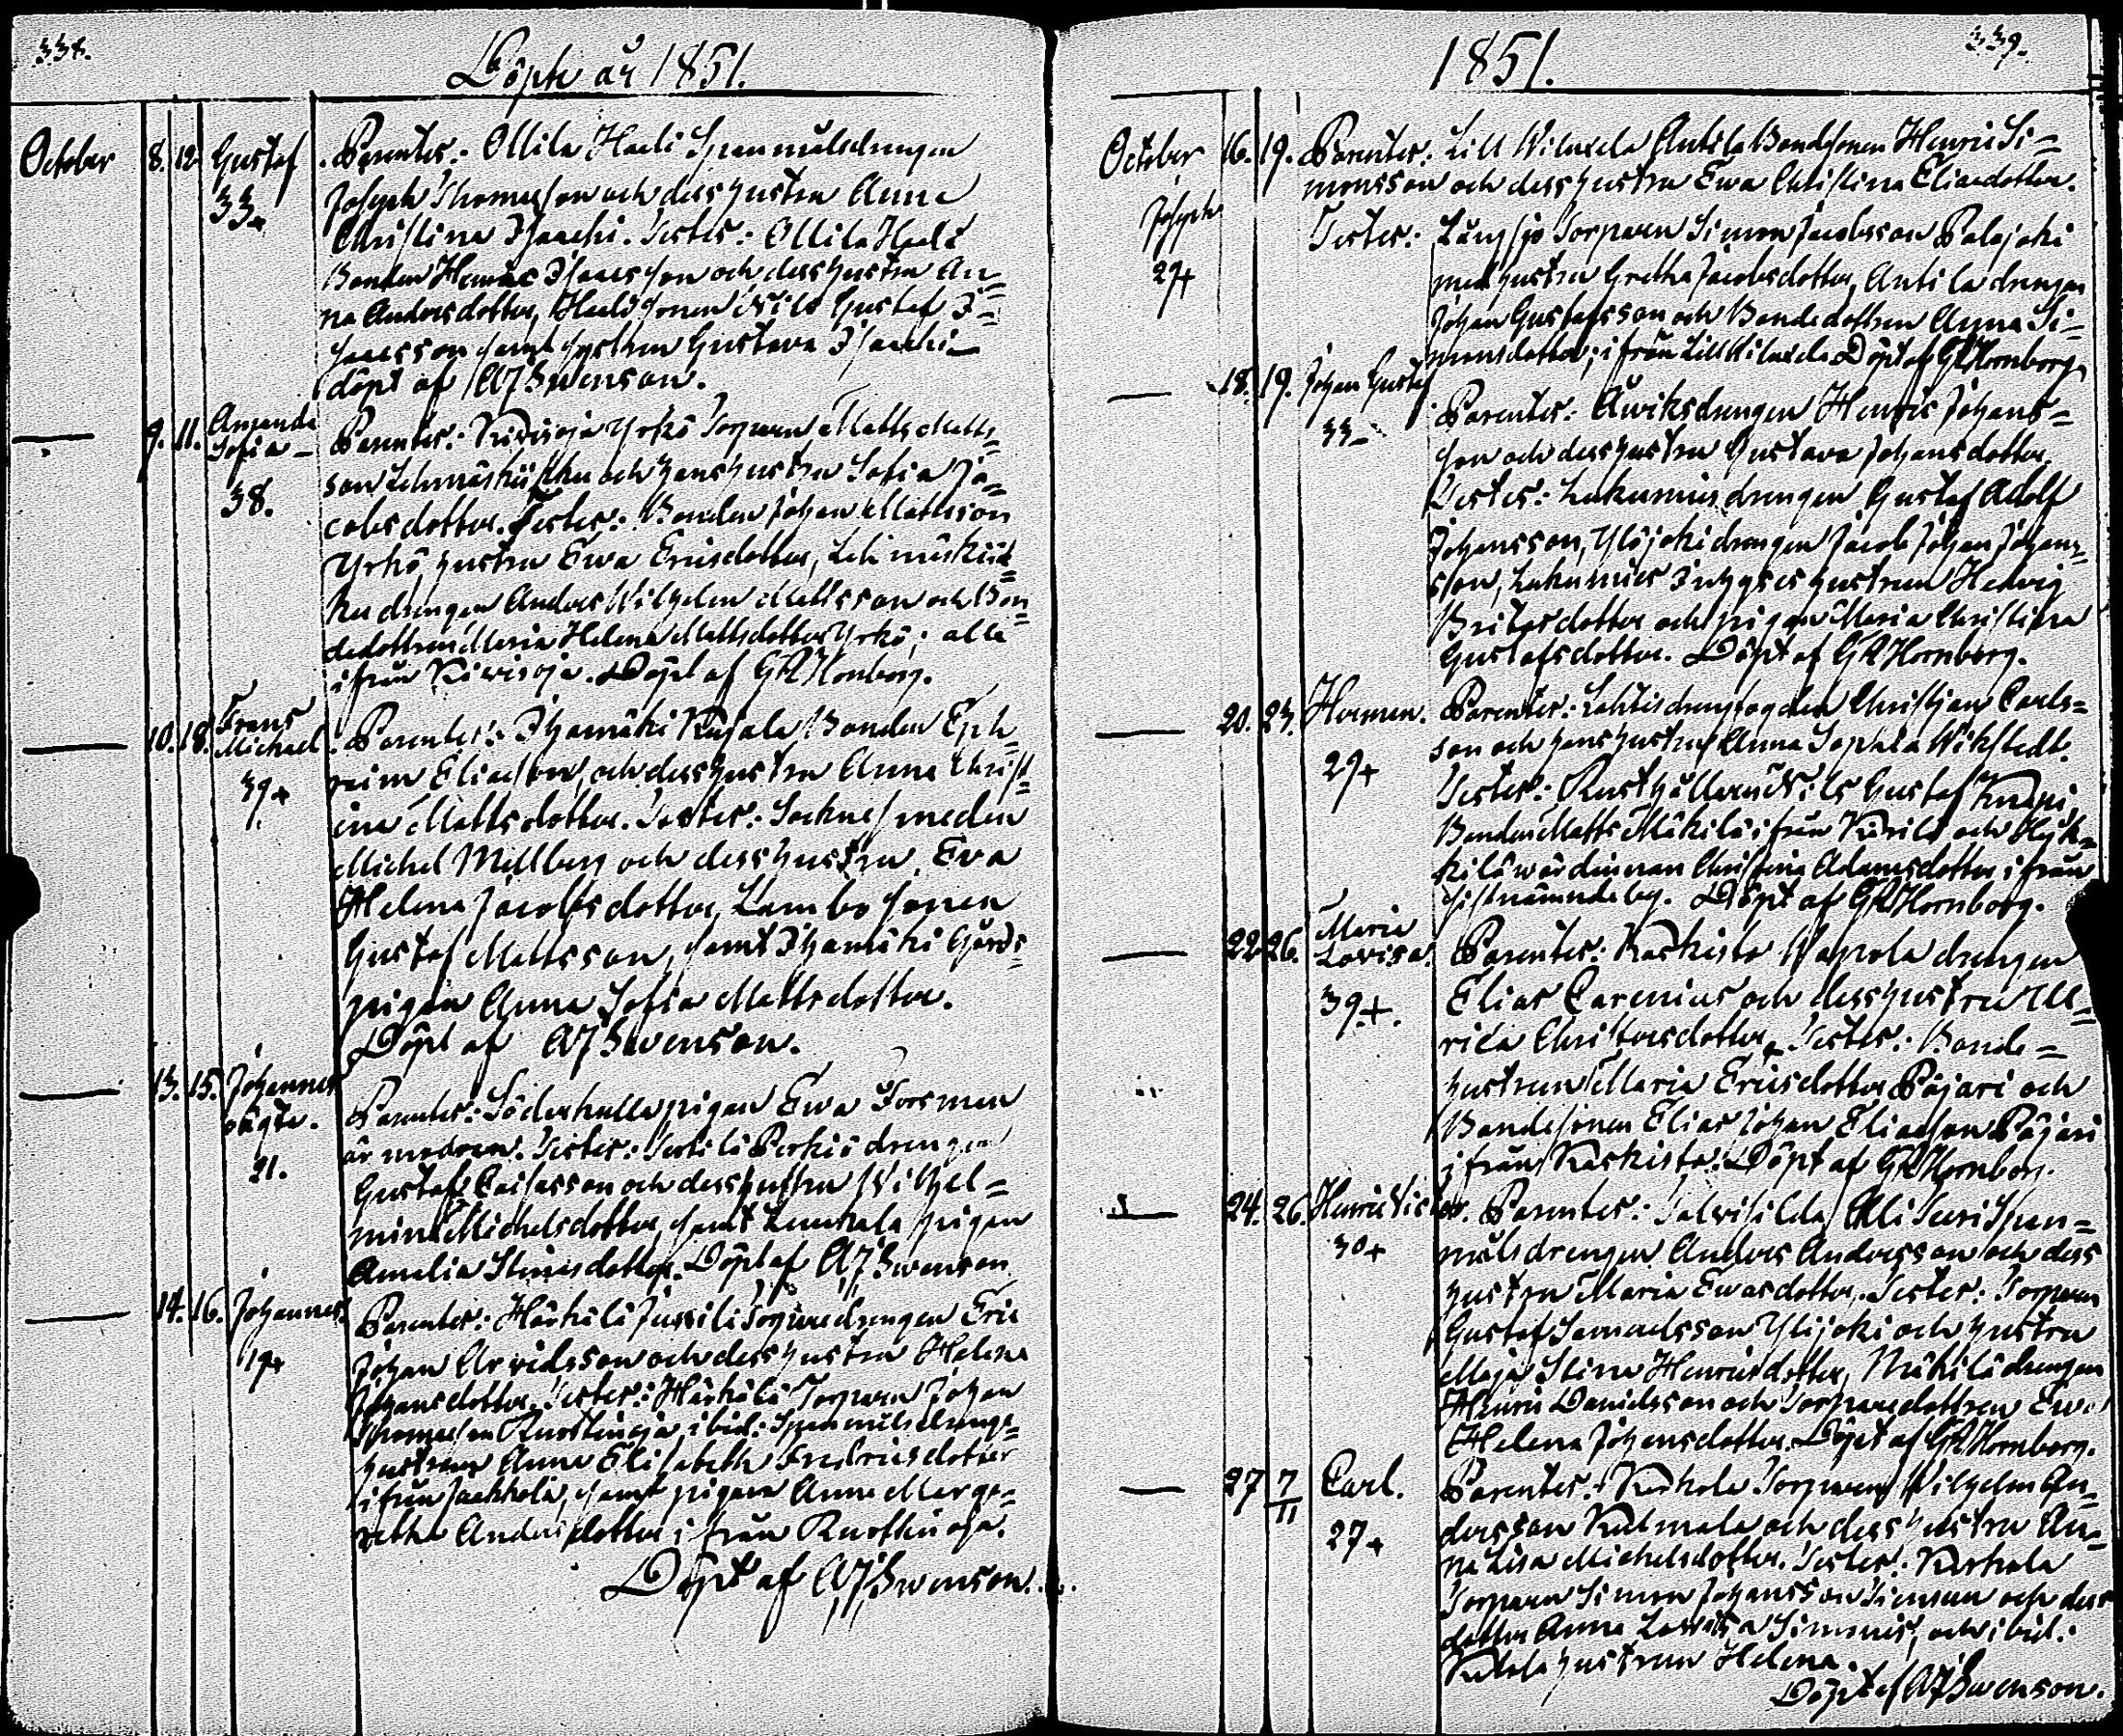 338.
Döpte år 1851.
October 8. 12. Gustaf 33+ Parentes: Ollila Heeli Spanmålsdrengen
Joseph Thomasson och dess hustru Anna
Christina Isaachi. Testes: Ollila Heeli
Bonden Henric Isaacsson och dess hustru An=
na Andersdotter, Heeli sonen Gustaf I=
saacsson samt systren Gustava Isaachi
döpt af A J Swenson.
— 9. 11. Amanda Sofia — 38. Parentes: Kivisoja Yrkö Torparen Matts Matts=
son och hans hustru Sofia Ja=
cobsdotter. Testes: Bonden Johan Mattsson
Yrkö, hustru Ewa Ericsdotter,
drengen Anders Wilhelm Mattsson och Bon=
dedottren Maria Helena Mattsdotter Yrkö; alla
ifrån Kivisoja. Döpt af G A Hornborg.
— 10. 18. Frans Michael 39+ Parentes: Ihamäki Bonden Eph=
raim Eliasson, och dess hustru Anna Christ=
ina Mattsdotter. Testes: Sockne smeden
Michel Millberg och dess hustru Eva
Helena Jacobsdotter, Lambo sonen
Gustaf Mattsson, samt Ihamäki Gårds=
pigan Anna Sofia Mattsdotter.
Döpt af A J Swenson.
— 13. 15. Johannes oägta. 21. Parentes: Söderkulla pigan Ewa Forsman
är modren. Testes: drengen
Gustaf och dess hustru Wilhel=
mina Michelsdotter, samt pigan
Amalia Stinasdotter. Döpt af A J Swenson
— 14. 16. Johannes. 19+ Parentes: Härkälä Jussila Torparedrengen Eric
Johan Arvidsson och dess hustru Helena
Johansdotter. Testes: Härkälä Torparen Johan
Thomasson Ruostinoja, ibid: Spanmålsdrengs=
hustrun Anna Elisabeth Fredricsdotter
ifrån, samt pigan Anna Marga=
retha Andersdotter ifrån Ruostinoja.
Döpt af A J Swenson.
339.
1851.
October 16. 19. Joseph 27+ Parentes: Lill Wilaxela Antila Bondsonen Henric Si=
monsson och dess hustru Ewa Christina Eliaedotter.
Testes: Långsjö Torparen Simon Jacobsson Palojoki
med hustru Gretha Jacobsdotter, Antila drengen
Johan Gustafsson och Bondedottren Anna Si=
monsdotter; ifrån Lill Wilaxela Döpt af G A Hornborg
— 18. 19. Johan Gustaf 33– Parentes: Awiksdrengen Henric Johans=
son och dess hustru Gustava Johansdotter
Testes: drengen Gustaf Adolf
Johansson, Ylöjoki drengen Jacob Johan Johans=
son, hustrun Hedvig
Britasdotter och pigan Maria Christina
Gustafsdotter. Döpt af G A Hornborg.
— 20. 23. Herman. 29+ Parentes: Lahtis drengfogden Christian Carls=
son och hans hustru Anna Sophia Wikstedt.
Testes: Rusthållaren Gustaf Knapi,
Bonden Matts Mäkilä ifrån och
kilä wärdinnan Christina Adamsdotter ifrån
sistnämnde by. Döpt af G A Hornborg.
— 22. 26. Maria Lovisa. 39.+. Parentes: Karkista drengen
Elias Carenius och dess hustru Ul=
rica Christersdotter. Testes: Bonde=
hustrun Maria Ericsdotter Pajari och
Bondesonen Elias Johan Eliasson Pajari
ifrån Karkista: Döpt af G A Hornborg.
— 24. 26. Henric Victor. 30+ Parentes: Talvisilda Span=
målsdrengen Anders Andersson och dess
hustru Maria Ewasdotter. Testes: Torparen
Gustaf Samuelsson Ylijoki och hustru
Maja Stina Henricsdotter, Mäkilä drengen
Henric Danielsson och Torparedottren Ewa
Helena Johansdotter. Döpt af G A Hornborg.
— 27 7/11 Carl. 27+ Parentes: Kerkola Torparen Wilhelm An=
dersson Kulmala och dess hustru An=
na Lisa Michelsdotter. Testes: Kerkola
Torparen Simon Johansson och dess
dotter Anna Lovisa, och ibid:
hustrun Helena.
Döpt af A J Swenson.